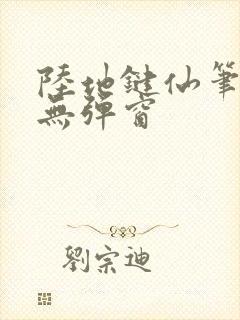 陸地鍵仙筆
無彈窗
劉宗迪